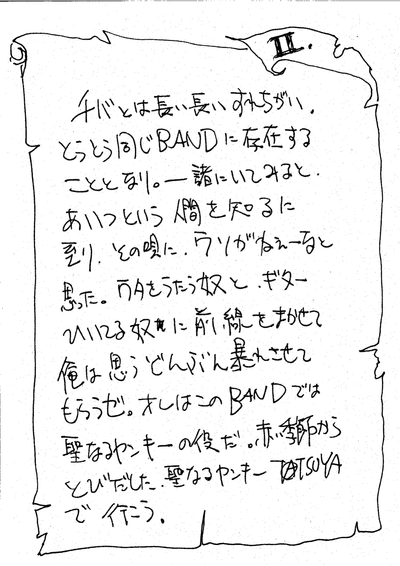 II.
チバとは長い長いすれちがい。
とうとう同じBANDに存在する
こととなり。一諸にいてみると、
あいつという人間を知るに
至り、その唄に、ウソがねぇーなと
思った。ウタをうたう奴と、ギター
ひいてる奴に前線をまかせて
俺は思うどんぶん暴れさせて
もらうゼ。オレはこのBANDでは
聖なるヤンキーの役だ。赤い季節から
とびだした、聖なるヤンキー TATSUYA
で行こう。